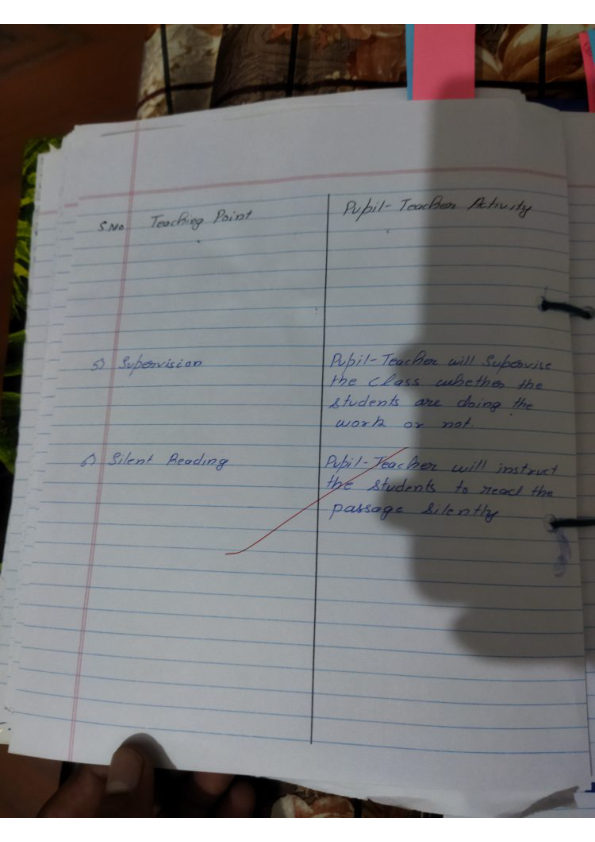 S.No. Teaching Point Pupil-Teacher Activity
5) Supervision Pupil-Teacher will Supervise
the class whether the
students are doing the
work or not.
6) Silent Reading Pupil-Teacher will instruct
the students to read the
passage silently